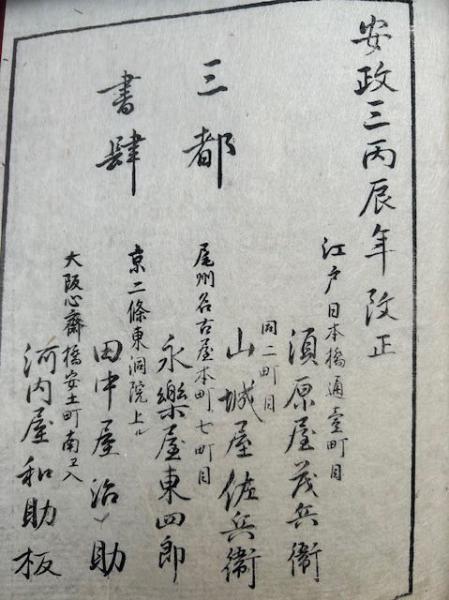 安政三丙辰年改正
三都
書肆
江戸日本橋通壹町目
須原屋茂兵衞
同二町目
山城屋佐兵衞
尾州名古屋本町七町目
永樂屋東四郎
京二條東洞院上ル
田中屋治助
大阪心齋橋安土町南ヱ入
河内屋和助板